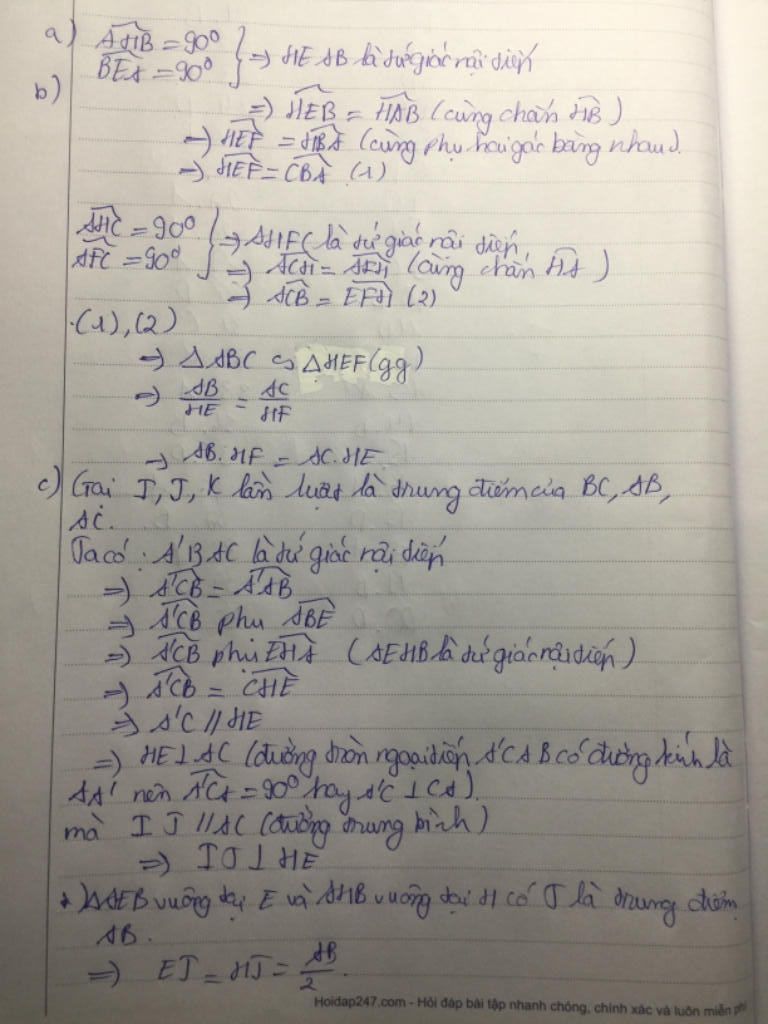 a) AHB = 90⁰ } ⇒ HEAB là tứ giác nội tiếp
BEA = 90⁰
b)
⇒ HEB = HAB (cùng chắn HB)
⇒ HEF = HBA (cùng phụ hai góc bằng nhau).
⇒ HEF = CBA (1)
AHC = 90⁰ } ⇒ AHFC là tứ giác nội tiếp
AFC = 90⁰
⇒ ACH = AFH (cùng chắn HA)
⇒ ACB = EFH (2)
(1), (2)
⇒ ΔABC ∽ ΔHEF (gg)
⇒ AB/HE = AC/HF
⇒ AB.HF = AC.HE
c) Gọi I, J, K lần lượt là trung điểm của BC, AB,
AC.
Ta có: A'BAC là tứ giác nội tiếp
⇒ A'CB = A'AB
⇒ A'CB phụ ABE
⇒ A'CB phụ EHA (AEHB là tứ giác nội tiếp)
⇒ A'CB = CHE
⇒ A'C // HE
⇒ HE ⊥ AC (đường tròn ngoại tiếp A'CAB có đường kính là
AA' nên A'CA = 90⁰ hay A'C ⊥ CA).
mà IJ // AC (đường trung bình)
⇒ IJ ⊥ HE
+) ΔAEB vuông tại E và AHB vuông tại H có J là trung điểm
AB.
⇒ EJ = HJ = AB/2.
Hoidap247.com - Hỏi đáp bài tập nhanh chóng, chính xác và luôn miễn phí